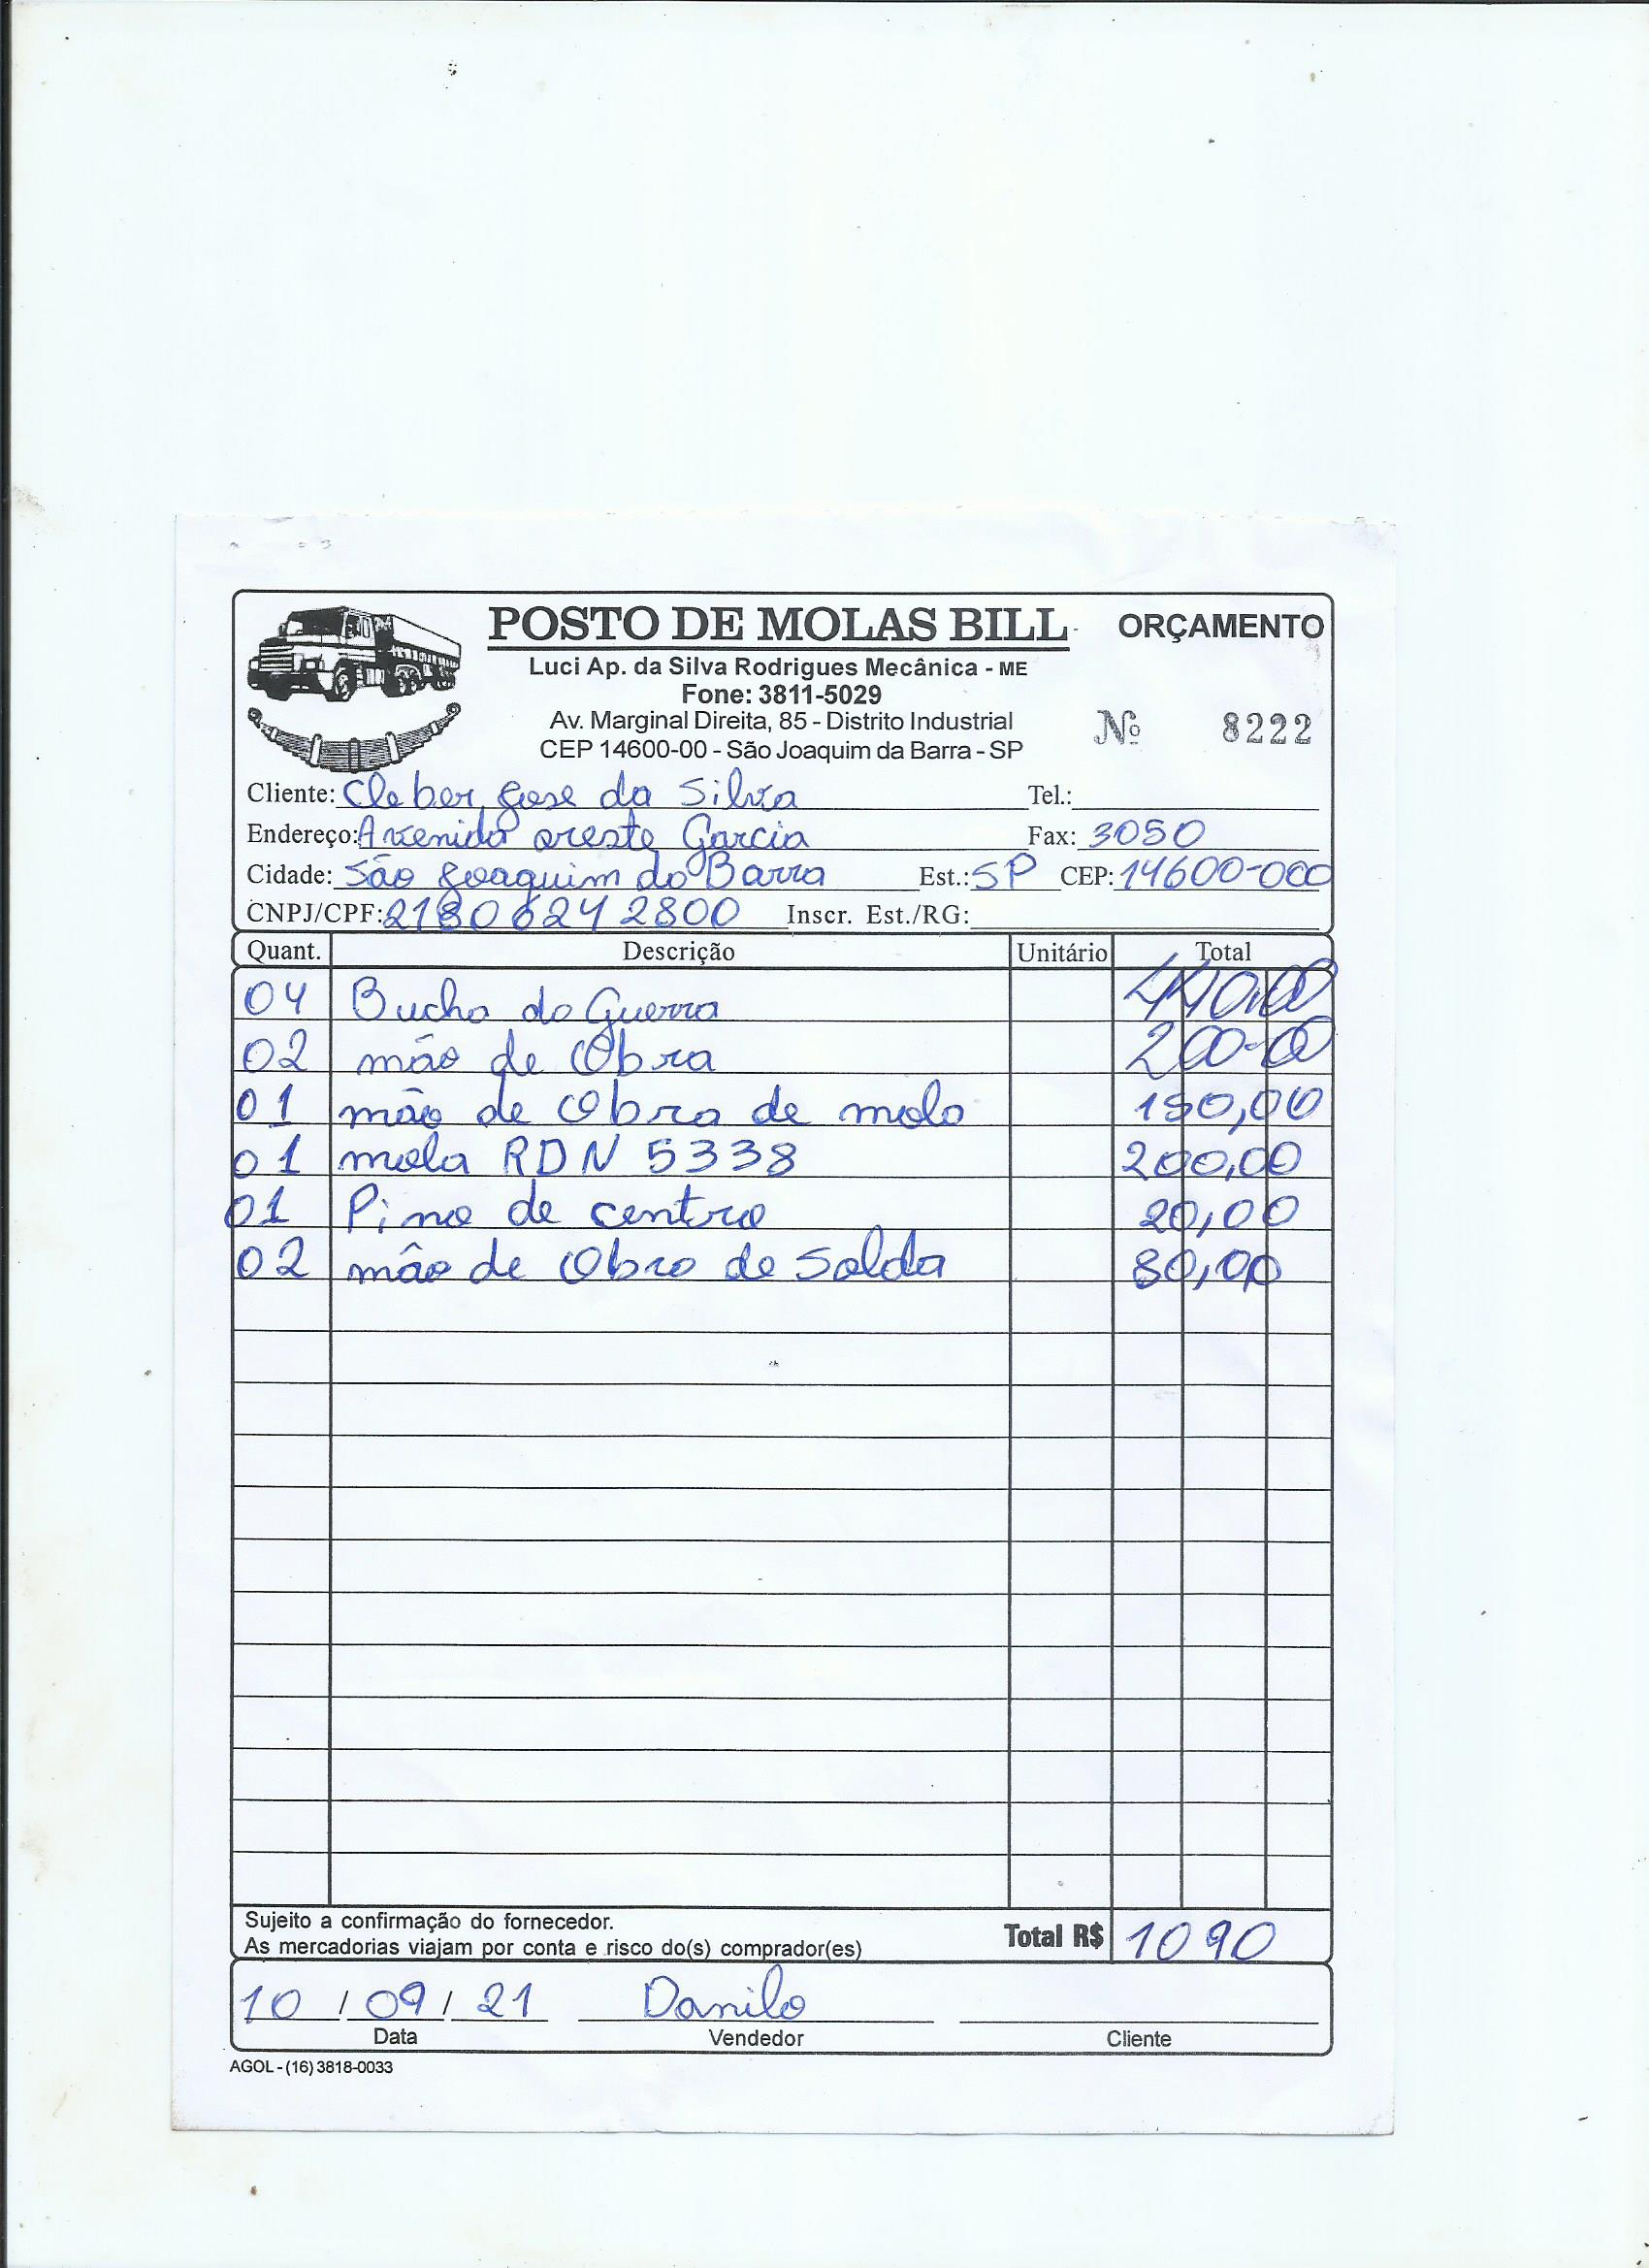 POSTO DE MOLAS BILL
ORÇAMENTO
Luci Ap. da Silva Rodrigues Mecânica - ME
Fone: 3811-5029
Av. Marginal Direita, 85 - Distrito Industrial
CEP 14600-00 - São Joaquim da Barra - SP
Nº 8222
Cliente: Cleber Jose da Silva Tel.:
Endereço: Avenida oreste Garcia Fax: 3050
Cidade: São Joaquim da Barra Est.: SP CEP: 14600-000
CNPJ/CPF: 21806242800 Inscr. Est./RG:
Quant. Descrição Unitário Total
04 Bucha da Guerra 440,00
02 mão de Obra 200-00
01 mão de Obra de mola 150,00
01 mola RDN 5338 200,00
01 Pino de centro 20,00
02 mão de Obra de Solda 80,00
Sujeito a confirmação do fornecedor.
As mercadorias viajam por conta e risco do(s) comprador(es)
Total R$ 1090
10 / 09 / 21 Danilo
Data Vendedor Cliente
AGOL - (16) 3818-0033